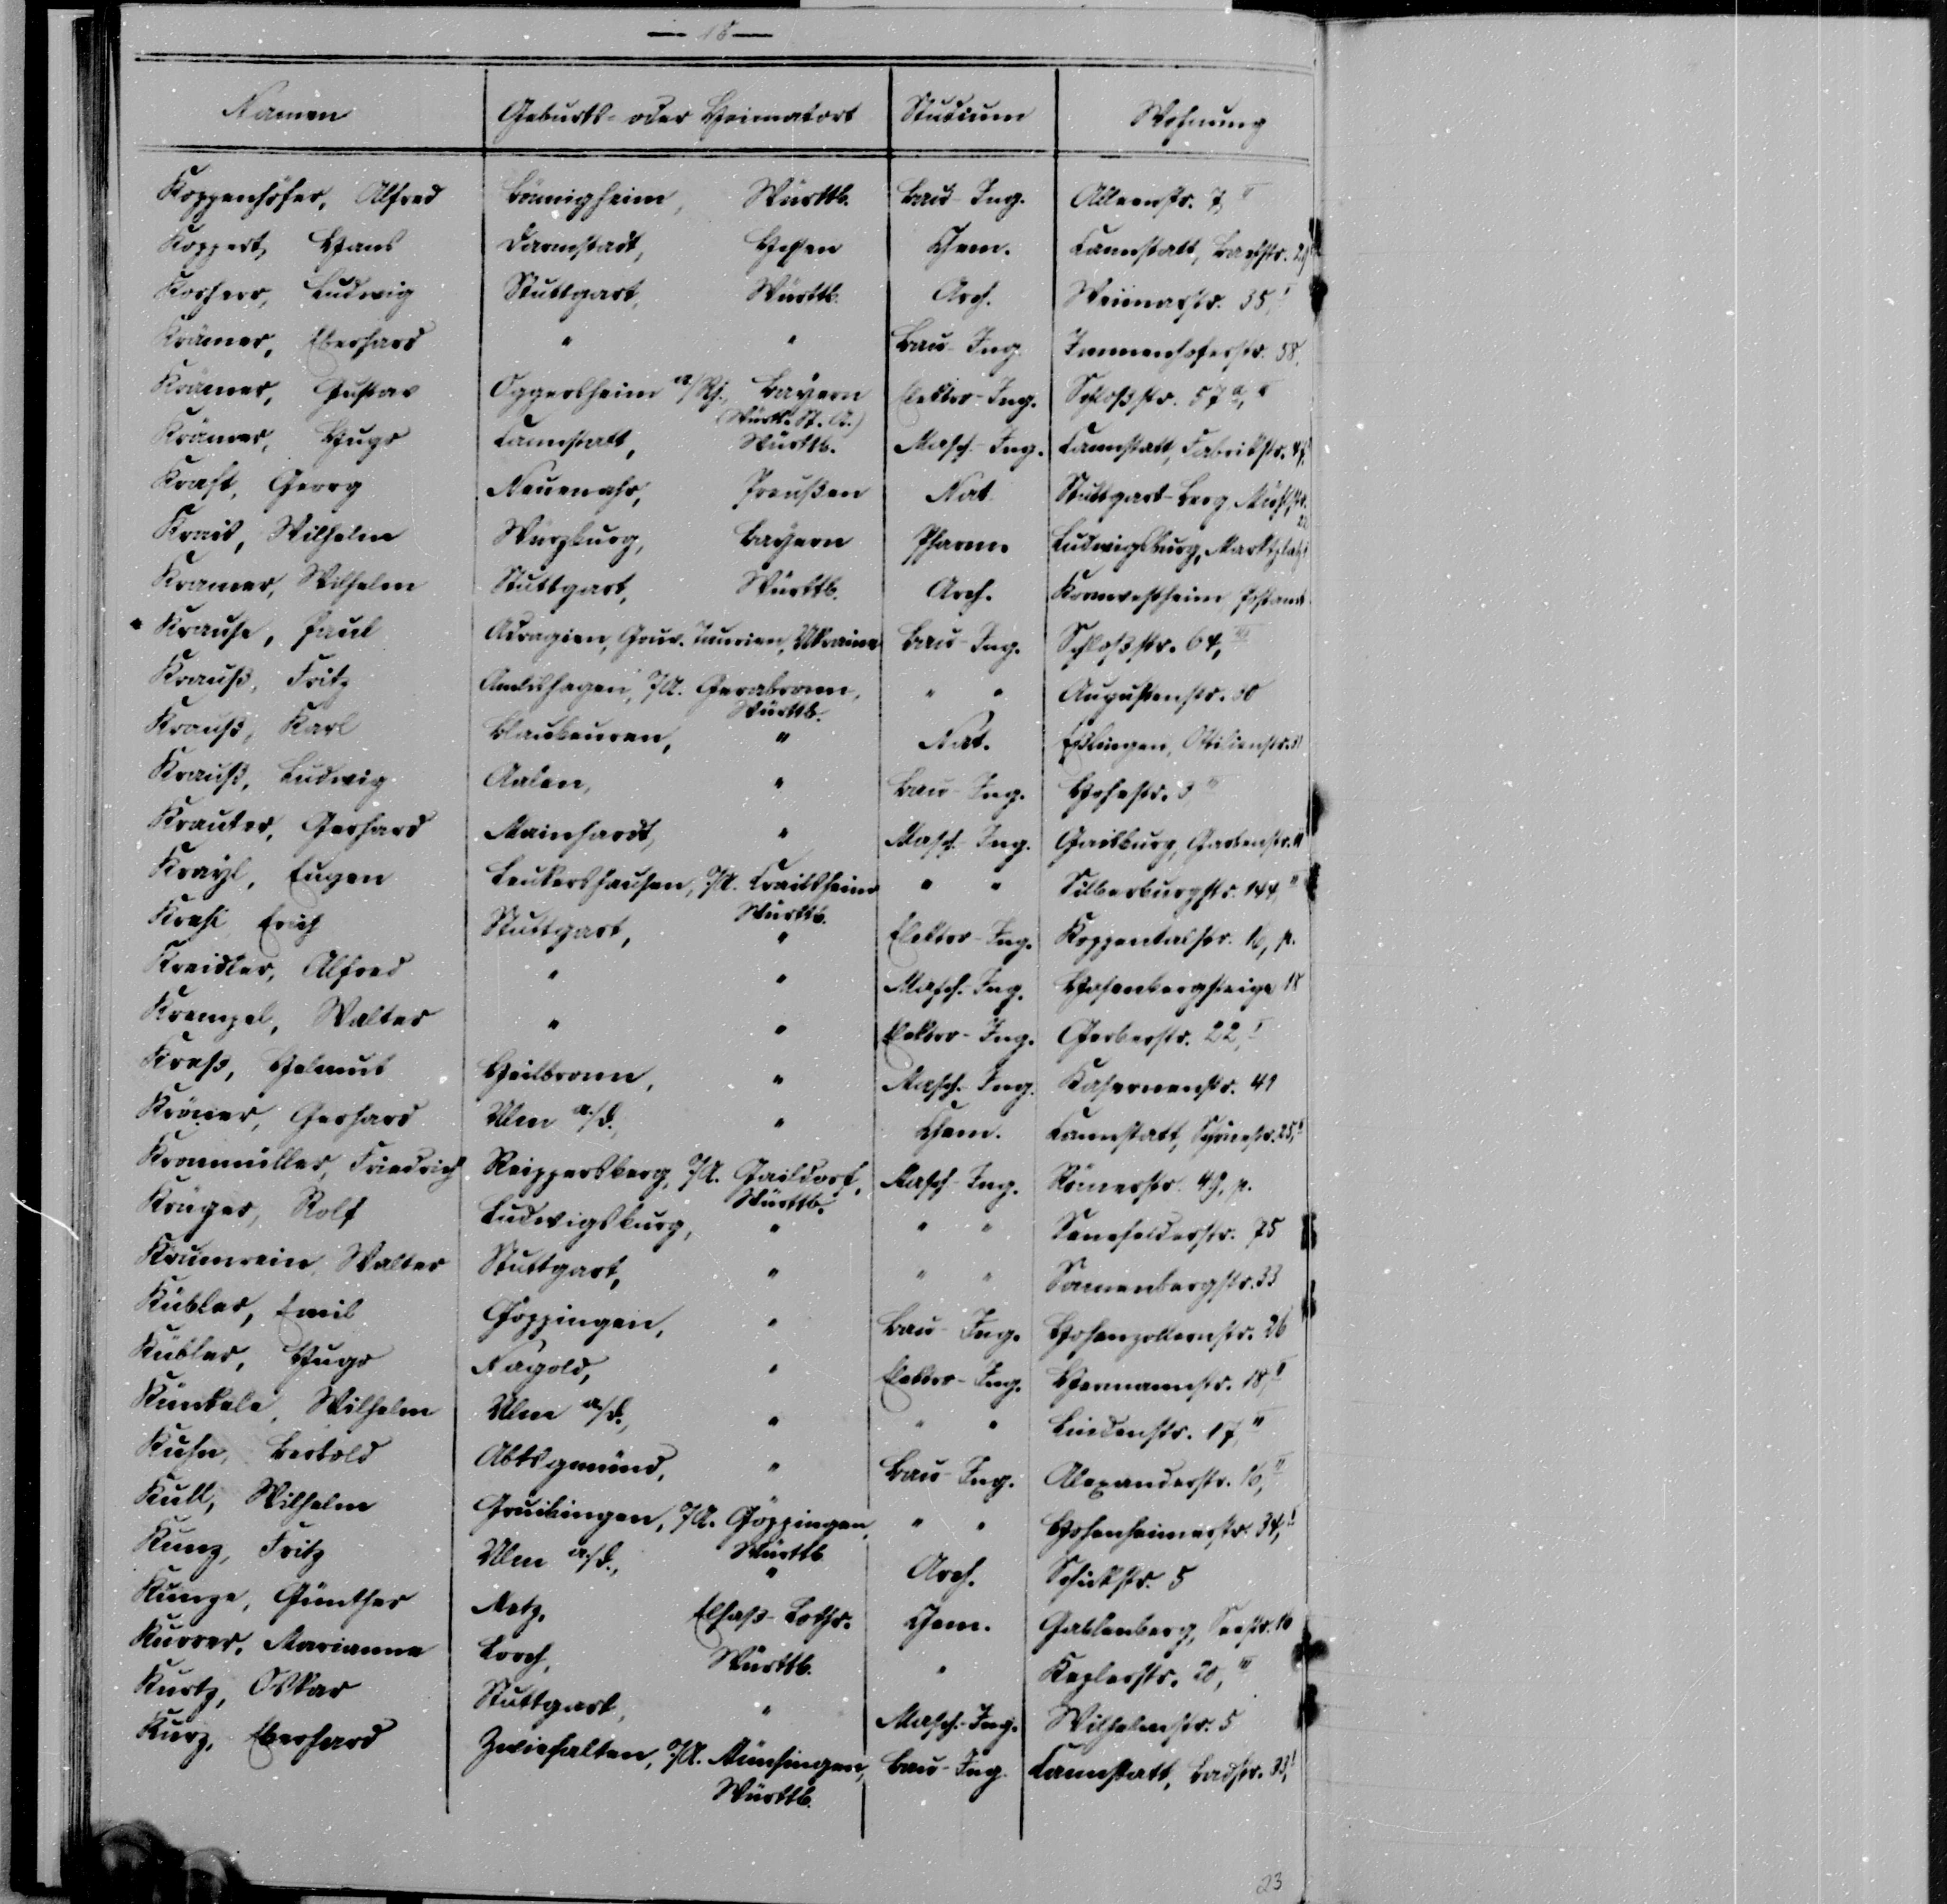 — 18 —
Namen Geburts- oder Heimatort Studium Wohnung
Koppenhöfer, Alfred Bönnigheim, Württb. Bau-Ing. Alleenstr. 7, II
Koppert, Hans Darmstadt, Hessen Chem. Cannstatt, Bachstr. 29
Korherr, Ludwig Stuttgart, Württb. Arch. Weimarstr. 35, I
Krämer, Eberhard " " Bau-Ing. Immenhoferstr. 58,
Krämer, Gustav Oggersheim a/Rh., Bayern Elektro-Ing. Schloßstr. 57 a, II
(Württ. St. A.)
Krämer, Hugo Cannstatt, Württb. Masch.-Ing. Cannstatt, Fabrikstr.
Kraft, Georg Neuenahr, Preußen Nat. Stuttgart-Berg,
Krais, Wilhelm Würzburg, Bayern Pharm. Ludwigsburg, Marktplatz
Kramer, Wilhelm Stuttgart, Württb. Arch. Kornwestheim, Postamt
* Krause, Paul Adragien, Gouv. Taurien, Ukraine Bau-Ing. Schloßstr. 64, III
Krauß, Fritz Amlishagen, O/A. Gerabronn, " " Augustenstr. 30
Württb.
Krauß, Karl Blaubeuren, " Nat. Eßlingen, Ottilienstr.
Krauß, Ludwig Aalen, " Bau-Ing. Hohestr. 3 II
Krauter, Gerhard Mainhardt, " Masch.-Ing. Gaisburg, Gartenstr.
Krayl, Eugen Leukershausen, O/A. Crailsheim " " Silberburgstr. 144, II
Württb.
Krehl Erich Stuttgart, " Elektro-Ing. Koppentalstr. 16, p.
Kreidler, Alfred " " Masch.-Ing. Hasenbergsteige 18
Krempel, Walter " " Elektro-Ing. Gerberstr. 22, I
Kreß, Helmut Heilbronn, " Masch.-Ing. Kasernenstr. 41
Kröner, Gerhard Ulm a/D., " Chem. Cannstatt, Schönestr. 25, II
Kronmüller, Friedrich Reippersberg, O/A. Gaildorf, Masch.-Ing. Römerstr. 49, p.
Württb.
Krüger, Rolf Ludwigsburg, " " " Senefelderstr. 75
Krumrein, Walter Stuttgart, " " " Sonnenbergstr. 33
Kübler, Emil Göppingen, " Bau-Ing. Hohenzollernstr. 26
Kübler, Hugo Nagold, " Elektro-Ing. Hermannstr. 18, II
Künkele, Wilhelm Ulm a/D., " " " Lindenstr. 17, II
Kuhn, Bertold Abtsgmünd, " Bau-Ing. Alexanderstr. 16, II
Kull, Wilhelm Gruibingen, O/A. Göppingen, " " Hohenheimerstr. 34, I
Württb
Kunz, Fritz Ulm a/D., " Arch. Schickstr. 5
Kunze, Günther Metz, Elsaß-Lothr. Chem. Gablenberg, Seestr. 16
Kurrer, Marianne Lorch, Württb. " Keplerstr. 20, III
Kurtz, Oskar Stuttgart, " Masch.-Ing. Wilhelmstr. 5
Kurz, Eberhard Zwiefalten, O/A. Münsingen, Bau-Ing. Cannstatt, Badstr. 33, I
Württb.
23